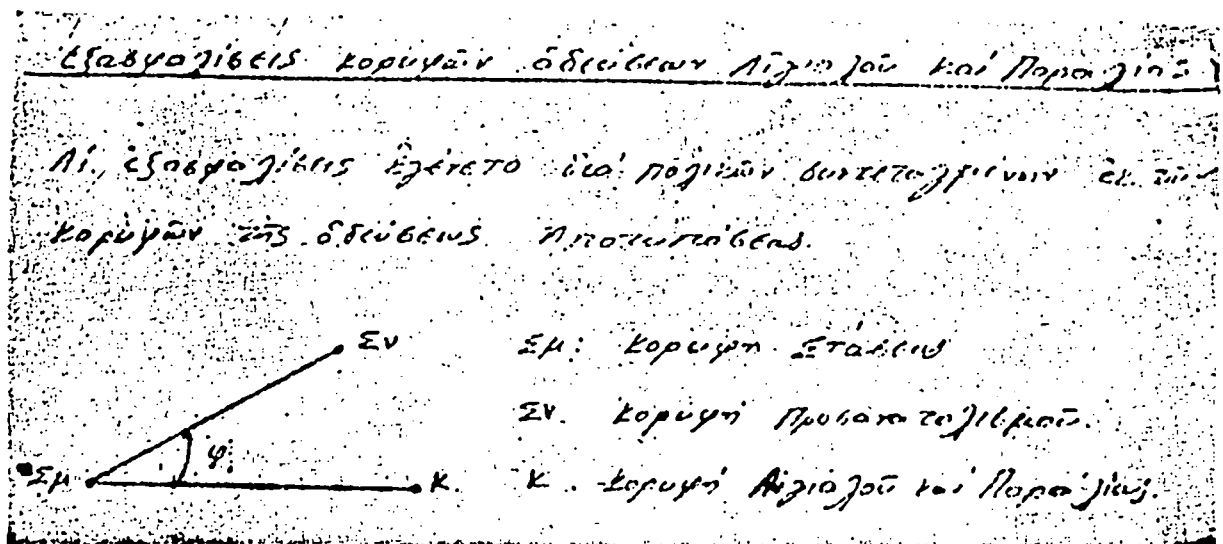 Ἐξασφαλίσεις κορυφῶν ὁδεύσεων Αἰγιαλοῦ καί Παραλίας
Αἱ ἐξασφαλίσεις ἐλένετο διά πολικῶν συντεταγμένων ἐκ τῶν
κορυφῶν τῆς ὁδεύσεως Ἀποτυπώσεως.
Σν
Σμ: Κορυφή Στάσεως
Σν. Κορυφή Προσανατολισμοῦ.
φ
Σμ K K. Κορυφή Αἰγιαλοῦ καί Παραλίας.